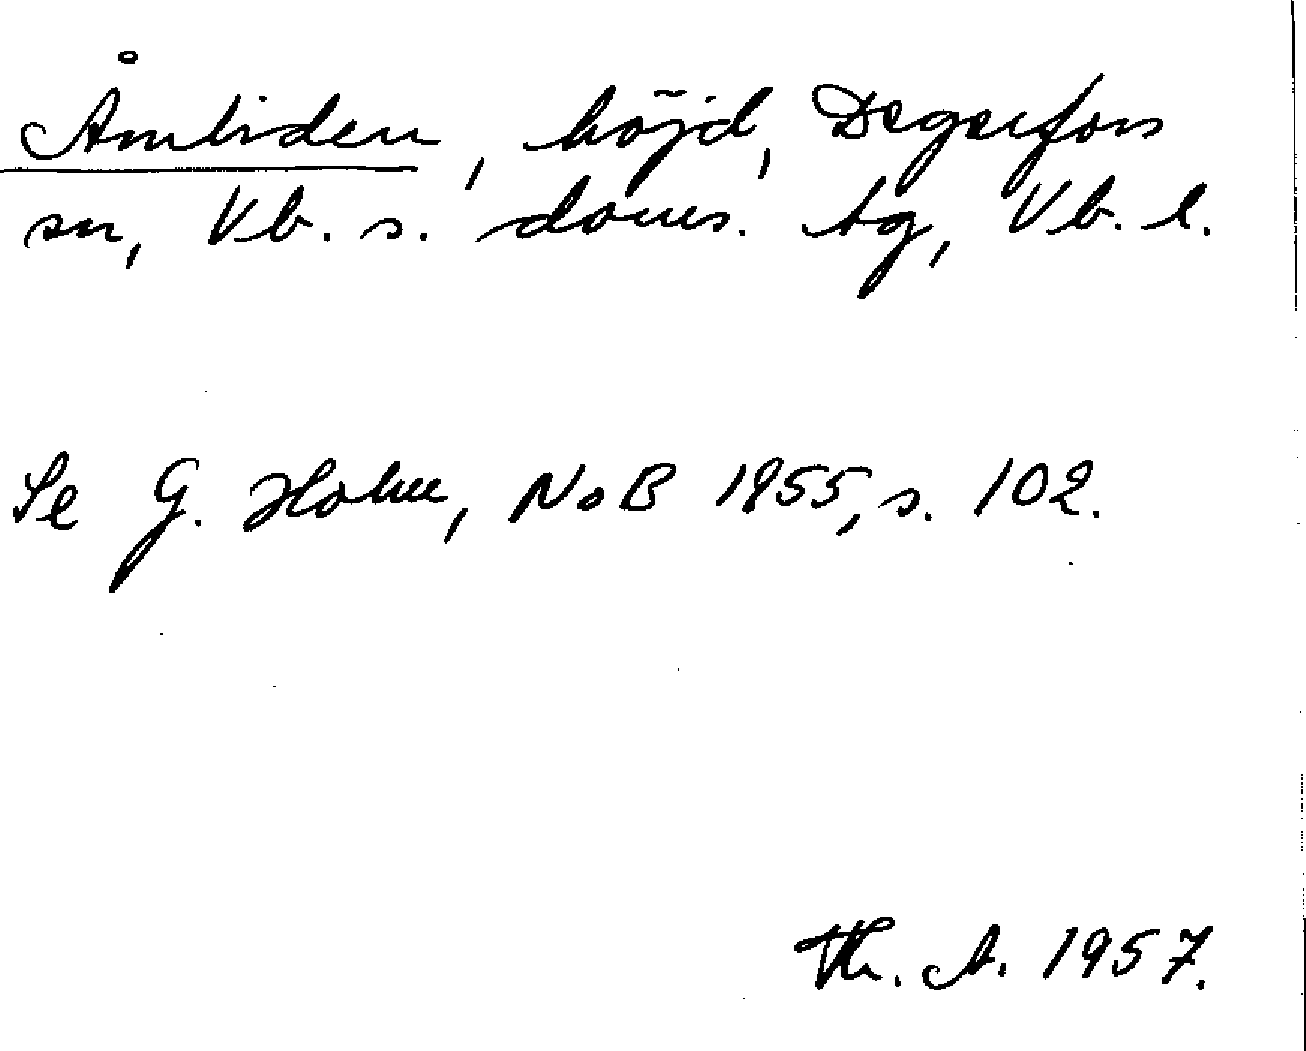 Åmliden, höjd, Degerfors
sn, Vb. s. doms. tg, Vb. l.
Se G. Holm, NoB 1955, s. 102.
Th. A. 1957.